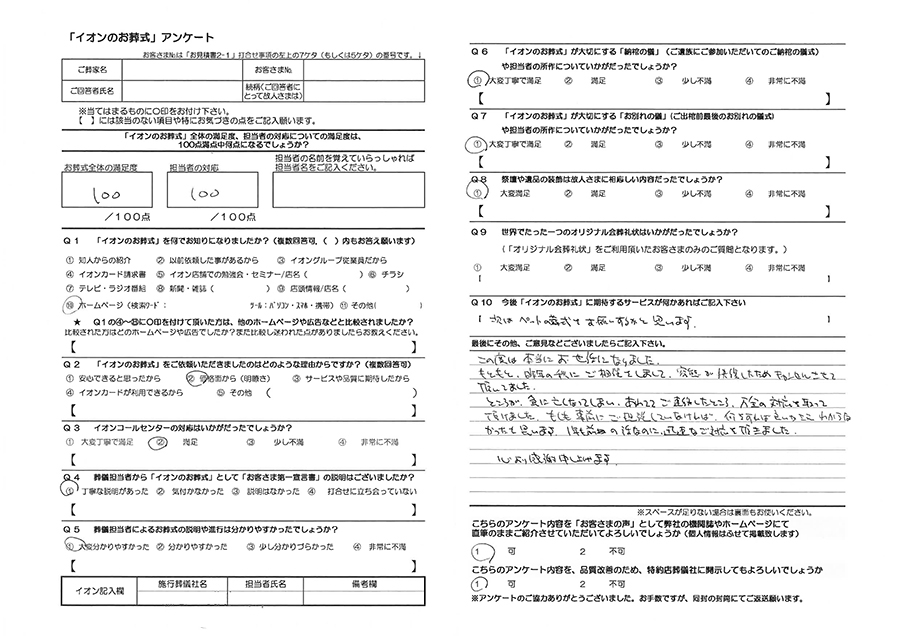 「イオンのお葬式」アンケート
お客さま№は「お見積書2-1」打合せ事項の左上の7ケタ（もしくは5ケタ）の番号です。↓
ご葬家名
お客さま№
ご回答者氏名
続柄(ご回答者に
とって故人さまは)
※当てはまるものに○印をお付け下さい。
【 】には該当のない項目や特にお気づきの点をご記入願います。
「イオンのお葬式」全体の満足度、担当者の対応についての満足度は、
100点満点中何点になるでしょうか？
お葬式全体の満足度
担当者の対応
担当者の名前を覚えていらっしゃれば
担当者名をご記入ください。
100
100
／100点
／100点
Q１ 「イオンのお葬式」を何でお知りになりましたか？（複数回答可、（ ）内もお答え願います）
① 知人からの紹介 ② 以前依頼した事があるから ③ イオングループ従業員だから
④ イオンカード請求書 ⑤ イオン店舗での勉強会・セミナー/店名（ ） ⑥ チラシ
⑦ テレビ・ラジオ番組 ⑧ 新聞・雑誌（ ） ⑨ 店頭情報/店名（ ）
⑩ ホームページ（検索ワード： ツール：パソコン・スマホ・携帯） ⑪ その他（ ）
★ Q１の④～⑧に○印を付けて頂いた方は、他のホームページや広告などと比較されましたか？
比較された方はどのホームページや広告でしたか？また比較し迷われた点がありましたらお教えください。
【 】
Q２ 「イオンのお葬式」をご依頼いただきましたのはどのような理由からですか？（複数回答可）
① 安心できると思ったから ② 価格面から（明瞭さ） ③ サービスや品質に期待したから
④ イオンカードが利用できるから ⑤ その他 （ ）
【 】
Q３ イオンコールセンターの対応はいかがだったでしょうか？
① 大変丁寧で満足 ② 満足 ③ 少し不満 ④ 非常に不満
【 】
Q４ 葬儀担当者から「イオンのお葬式」として「お客さま第一宣言書」の説明はございましたか？
① 丁寧な説明があった ② 気付かなかった ③ 説明はなかった ④ 打合せに立ち会っていない
【 】
Q５ 葬儀担当者によるお葬式の説明や進行は分かりやすかったでしょうか？
① 大変分かりやすかった ② 分かりやすかった ③ 少し分かりづらかった ④ 非常に不満
【 】
イオン記入欄
施行葬儀社名
担当者氏名
備考欄
Q６ 「イオンのお葬式」が大切にする「納棺の儀」（ご遺族にご参加いただいてのご納棺の儀式）
や担当者の所作についていかがだったでしょうか？
① 大変丁寧で満足 ② 満足 ③ 少し不満 ④ 非常に不満
【 】
Q７ 「イオンのお葬式」が大切にする「お別れの儀」（ご出棺前最後のお別れの儀式）
や担当者の所作についていかがだったでしょうか？
① 大変丁寧で満足 ② 満足 ③ 少し不満 ④ 非常に不満
【 】
Q８ 祭壇や遺品の装飾は故人さまに相応しい内容だったでしょうか？
① 大変満足 ② 満足 ③ 少し不満 ④ 非常に不満
【 】
Q９ 世界でたった一つのオリジナル会葬礼状はいかがだったでしょうか？
（「オリジナル会葬礼状」をご利用頂いたお客さまのみのご質問となります。）
① 大変満足 ② 満足 ③ 少し不満 ④ 非常に不満
[ ]
Q10 今後「イオンのお葬式」に期待するサービスが何かあればご記入下さい
[ 次は ペットの葬式も お願いするかと 思います。 ]
最後にその他、ご意見などございましたらご記入下さい。
この度は 本当に お世話になりました。
もともと、昨年の秋に ご相談してまして、容態が 快復したため キャンセルさせて
頂いてました。
ところが、急に 亡くなってしまい、あわてて ご連絡したところ、万全の対応を取って
頂けました。もしも 事前に ご相談していなければ、何をすれば 良いかさえ わからな
かったと思います。1年も前の 話なのに、迅速な ご対応を 頂きました。
心より感謝申し上げます。
※スペースが足りない場合は裏面もお使いください。
こちらのアンケート内容を「お客さまの声」として弊社の機関誌やホームページにて
直筆のままご紹介させていただいてよろしいでしょうか（個人情報はふせて掲載致します）
1 可 2 不可
こちらのアンケート内容を、品質改善のため、特約店葬儀社に開示してもよろしいでしょうか
1 可 2 不可
※アンケートのご協力ありがとうございました。お手数ですが、同封の封筒にてご返送願います。